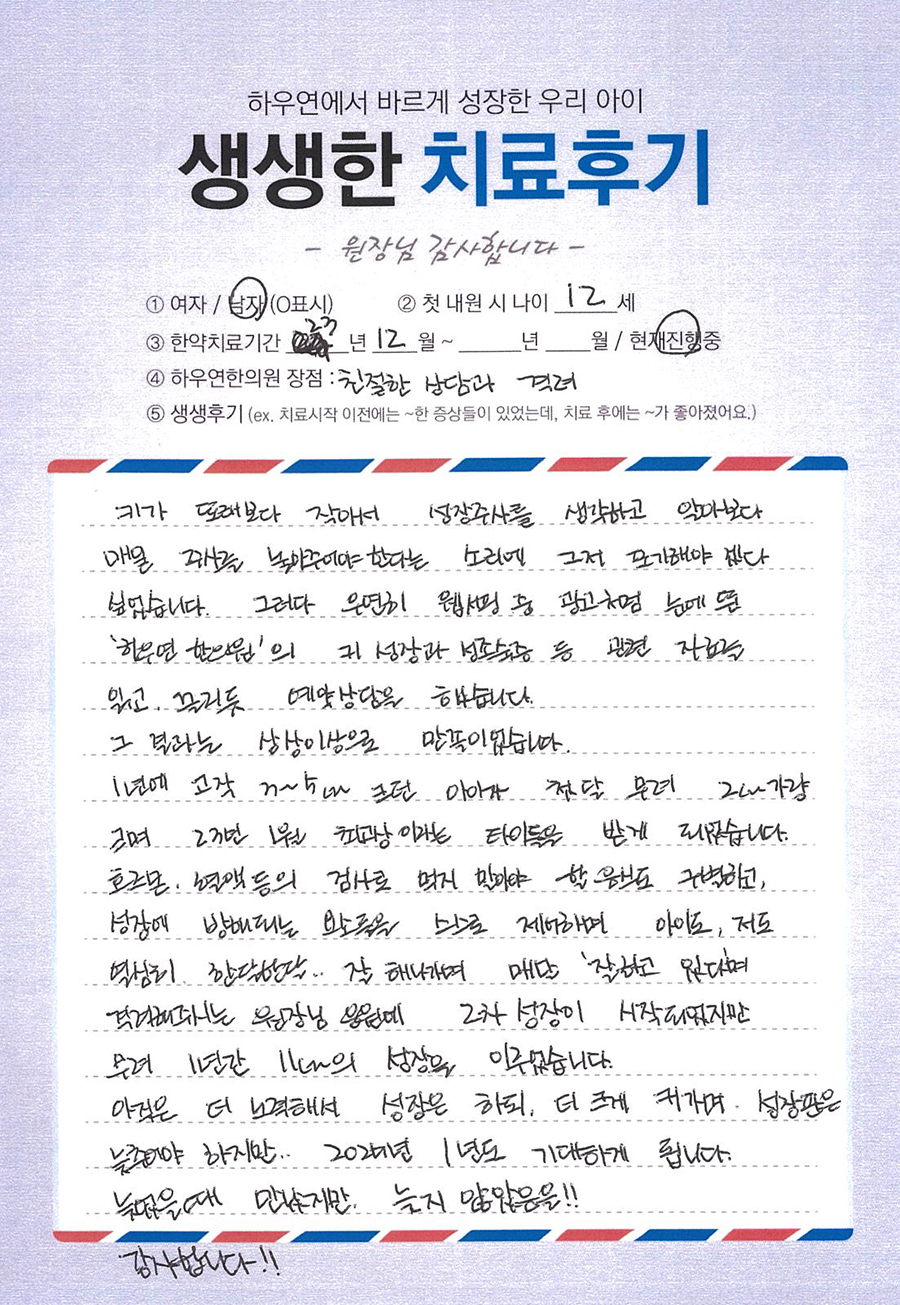 하우연에서 바르게 성장한 우리 아이
생생한 치료후기
- 원장님 감사합니다 -
① 여자 / 남자 (O표시) ② 첫 내원 시 나이 12 세
③ 한약치료기간 23 년 12 월 ~ ______년 ____월 / 현재진행중
④ 하우연한의원 장점 : 친절한 상담과 격려
⑤ 생생후기 (ex. 치료시작 이전에는 ~한 증상들이 있었는데, 치료 후에는 ~가 좋아졌어요.)
키가 또래보다 작아서 성장주사를 생각하고 알아보다
매일 주사를 놓아주어야 한다는 소리에 그저 포기해야 겠다
싶었습니다. 그러다 우연히 웹서핑 중 광고처럼 눈에 띈
'하우연 한의원'의 키 성장과 성조숙증 등 관련 자료를
읽고, 끌리듯 예약상담을 했습니다.
그 결과는 상상이상으로 만족이었습니다.
1년에 고작 ~5cm 크던 아이가 첫 달 무려 2cm가량
크며 23년 1월 최고상이라는 타이틀을 받게 되었습니다.
호르몬, 혈액 등의 검사로 먹지 말아야 할 음식도 구별하고,
성장에 방해되는 요소들을 스스로 제어하며 아이도, 저도
열심히 한달한달.. 잘 해나가며 매달 '잘하고 있다'며
격려해주시는 원장님 응원에 2차 성장이 시작되었지만
무려 1년간 11cm의 성장을 이루었습니다.
아직은 더 노력해서 성장은 하되, 더 크게 키가며 성장판은
늦추어야 하지만.. 2025년 1년도 기대하게 됩니다.
늦었을때 만났지만, 늦지 않았음을!!
감사합니다!!